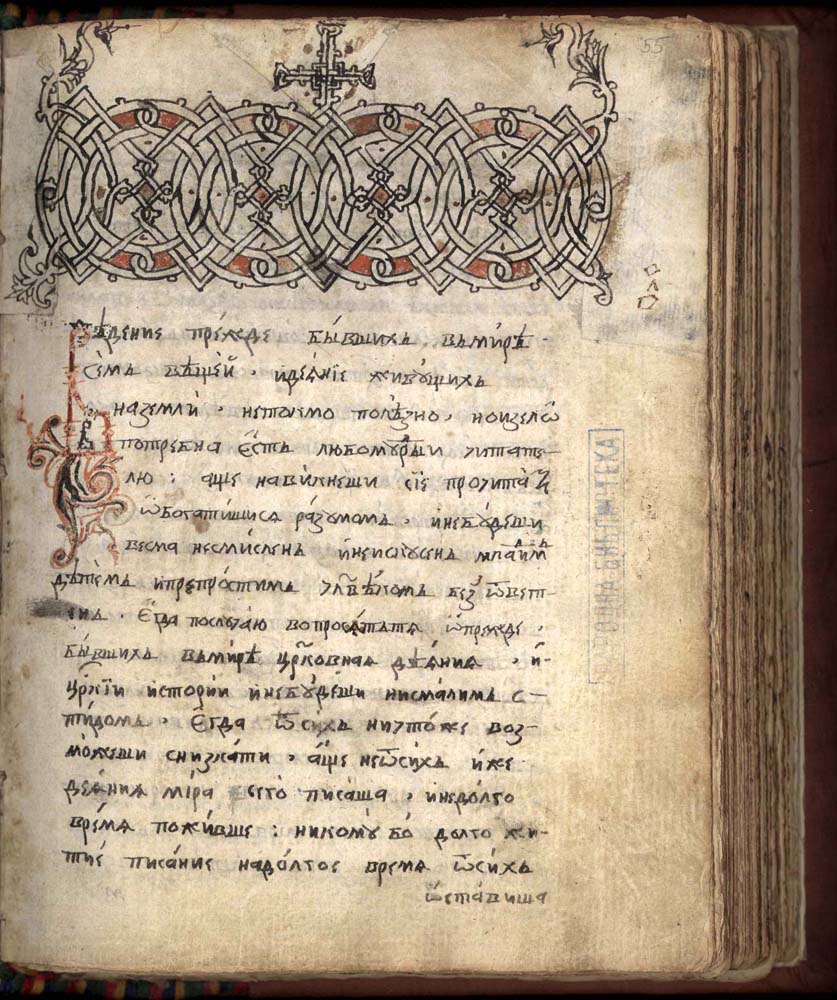 55
Вѣденїе пре́жде бы́вшихъ въми́рѣ
семъ вѣще́й идеѧ́нїе живꙋ́щихъ
наземли́, нето́чїю поле́зно, ноизелѡ̀
потребна є҆́сть любомꙋ́дрꙋ чита́те-
лю: а҆́ще навы́кнеши сїѐ прочита́ѧ
ѡ҆богати́шисѧ ра́зꙋмомъ, инебꙋ́деши
весма несмы́сленъ инеискꙋ́сенъ
дѣ́темъ ипрепрости́мъ чл҃вѣ́комъ без̾ѿвет-
енъ, є҆гда̀ послꙋча́ю вопроша́тьтѧ ѡ҆пре́жде
бы́вшихъ въми́рѣ цр҃ко́внаѧ дѣѧ́ниѧ, и҆
цр҃кїи исторїи инебꙋ́деши нисма́лимъ с-
ти́домъ, є҆гда̀ ѿси́хъ ничто́же воз-
мо́жеши снизка́ти, а҆́ще неѿси́хъ и҆́же
деѧ́ниѧ ми́ра сего̀ писа́ша, инедо́лго
вре́мѧ пожи́вше: никомꙋ́ бо̀ долго жи-
тїѐ писа́ние надо́лгое времѧ ѿси́хъ
ѡ҆ста́виша
НАРОДНА БИБЛИОТЕКА